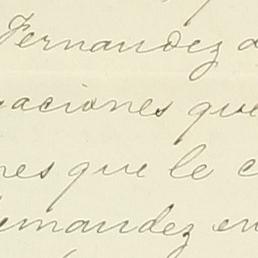 Fernandez a
aciones que
nes que le c
emandez en